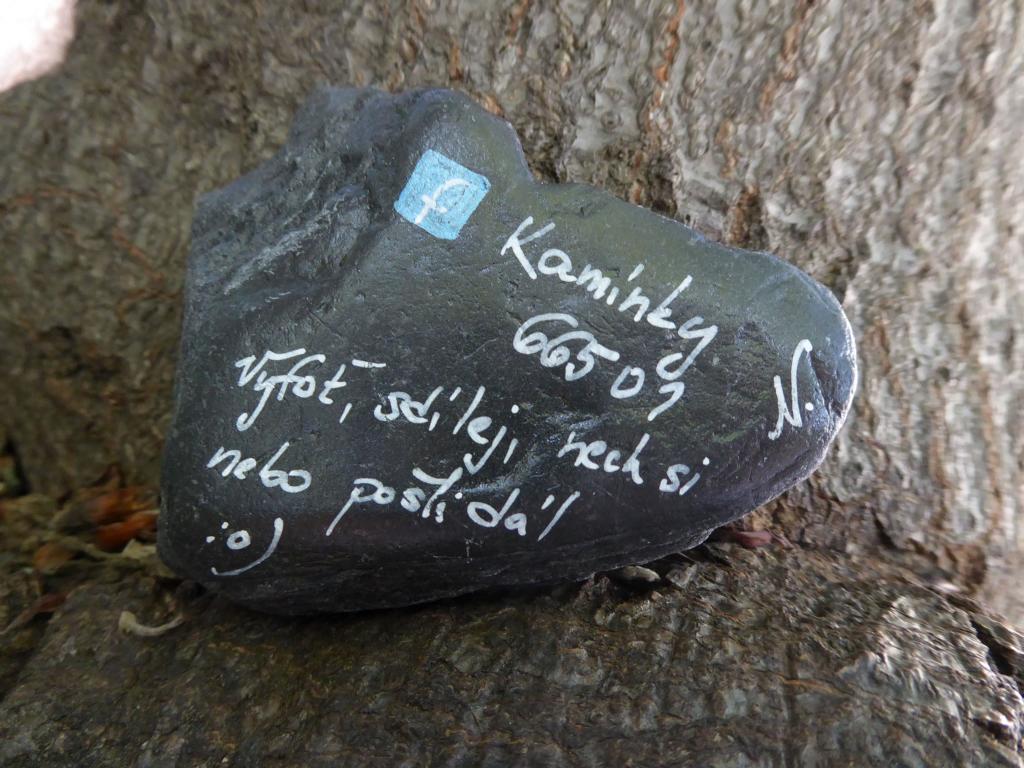 f
Kamínky
665 03
N.
Vyfoť, sdílej, nech si
nebo pošli dál
:o)